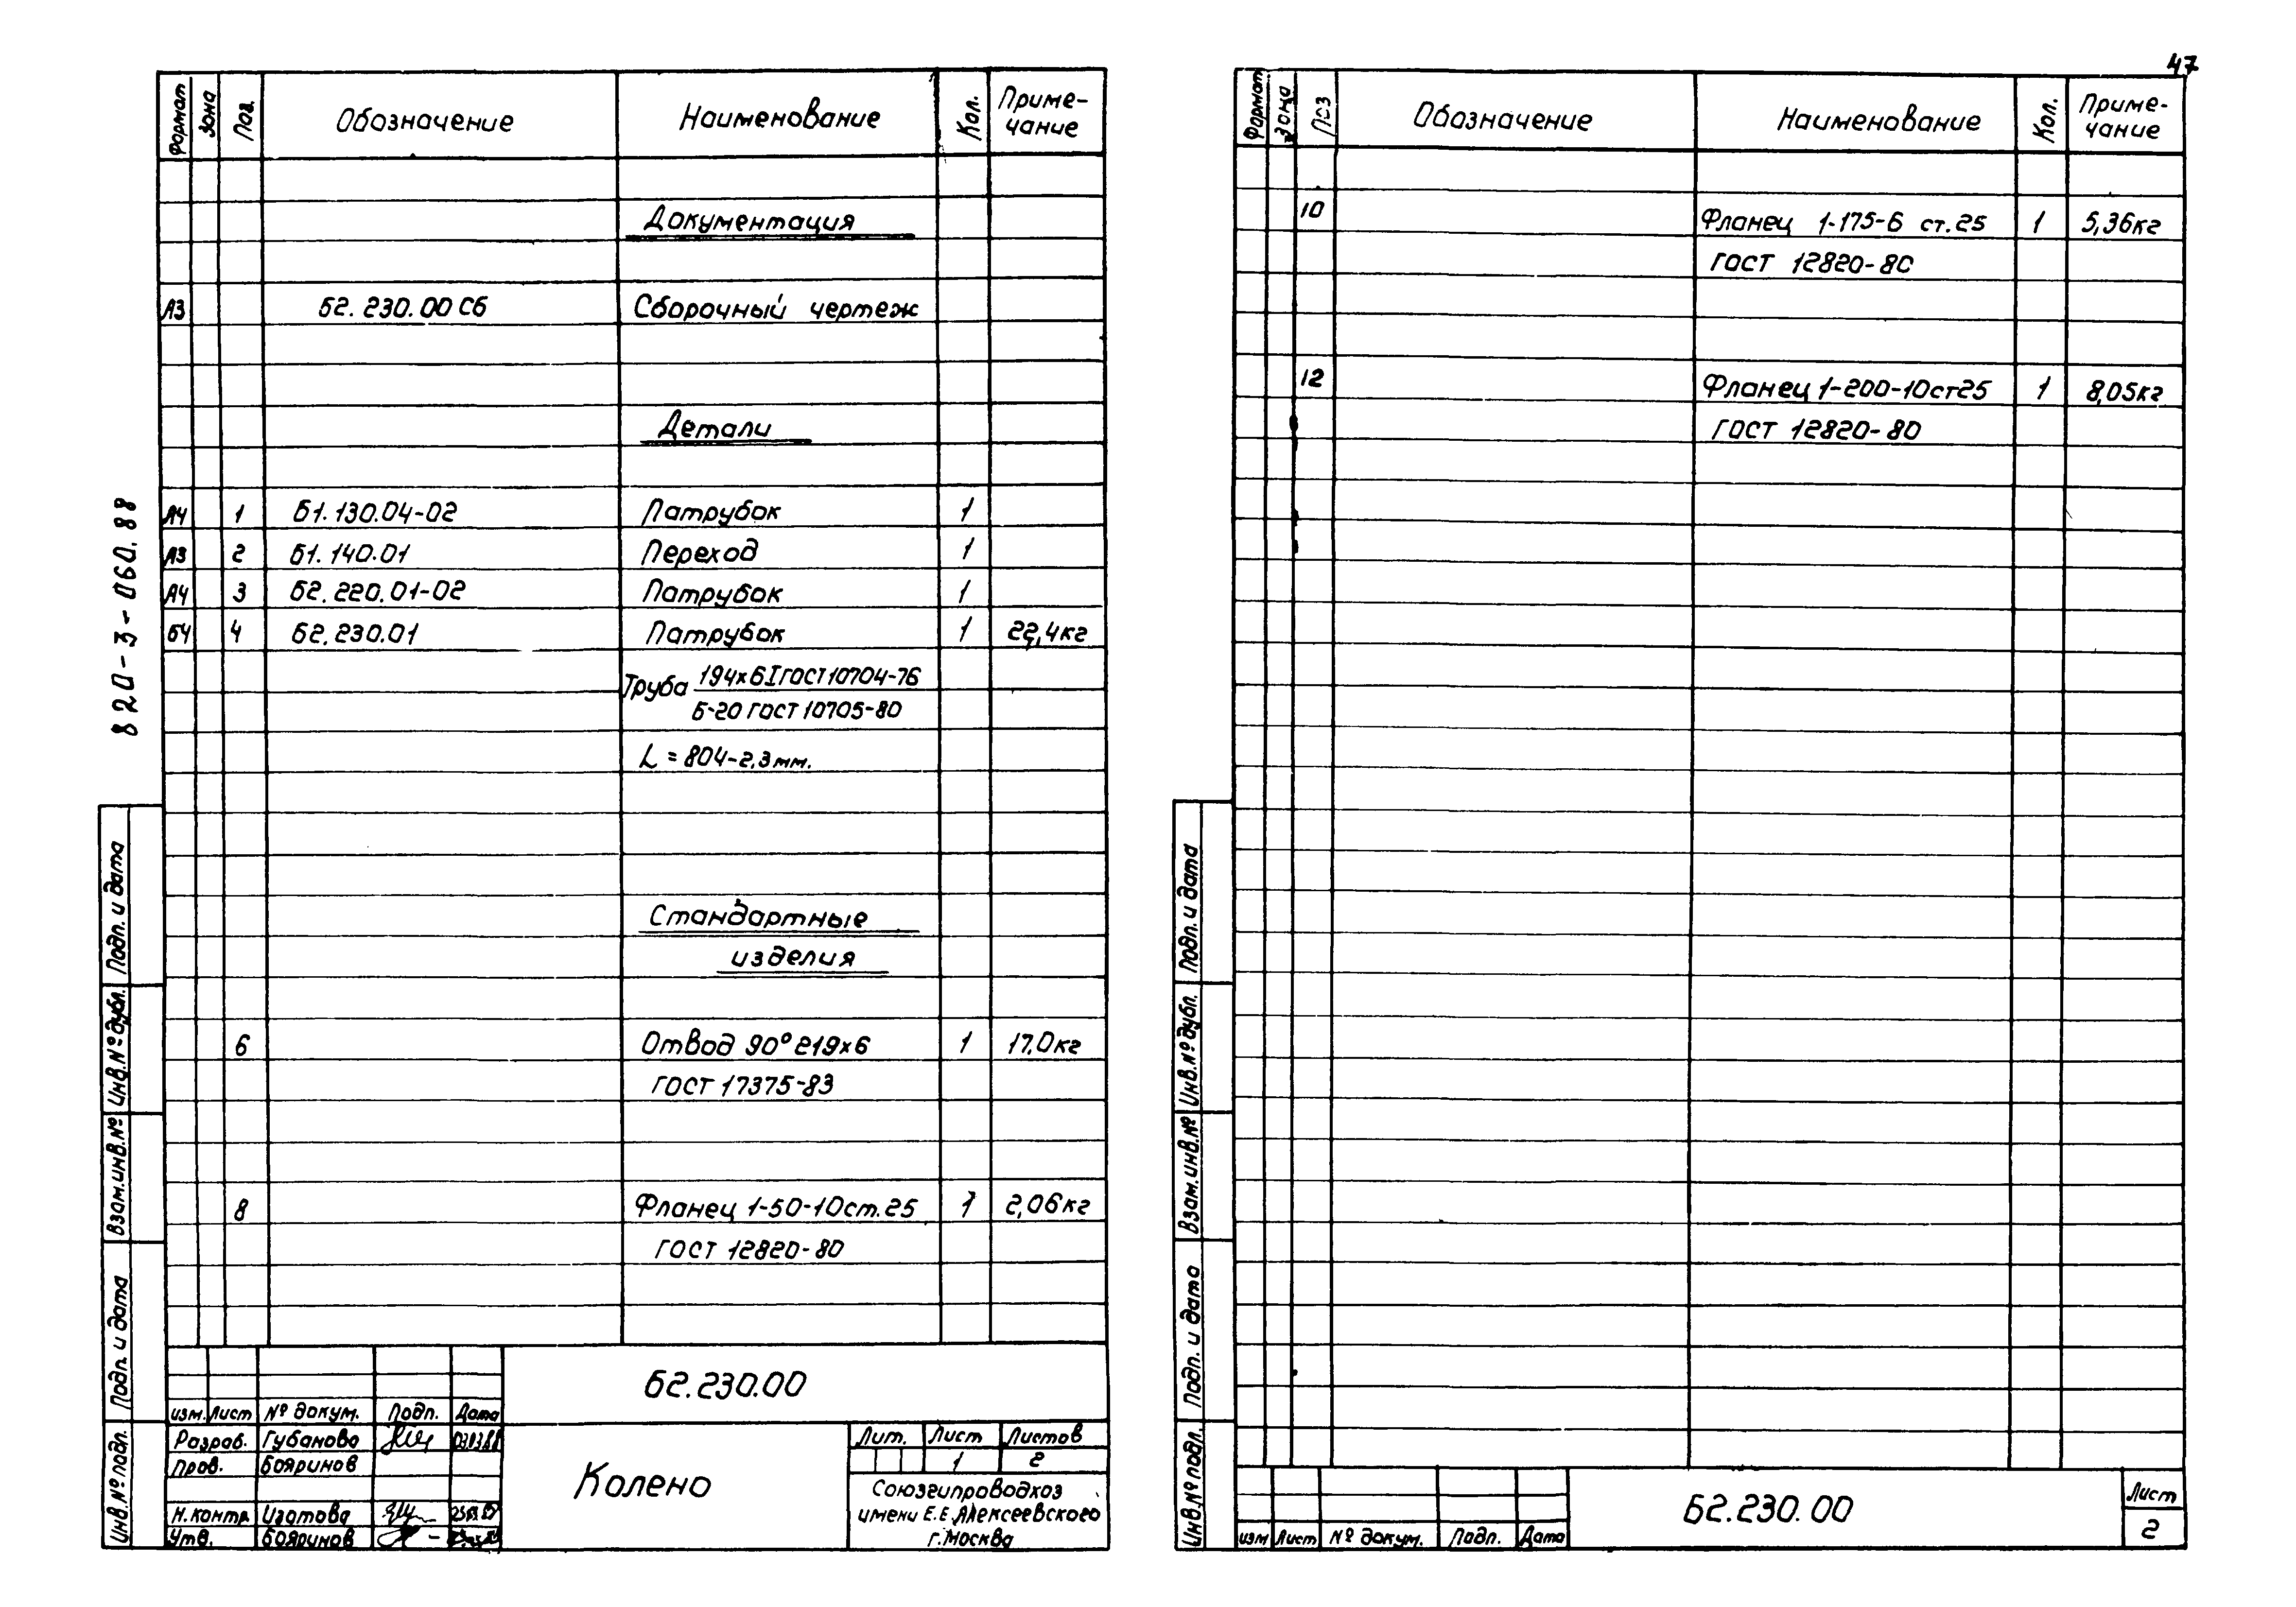 47
820-3-060.88
Формат Зона Поз. Обозначение Наименование Кол. Приме-
чание
Документация
А3 Б2.230.00 СБ Сборочный чертеж
Детали
А4 1 Б1.130.04-02 Патрубок 1
А3 2 Б1.140.01 Переход 1
А4 3 Б2.220.01-02 Патрубок 1
БЧ 4 Б2.230.01 Патрубок 1 22,4кг
Труба 194х6 I ГОСТ 10704-76
Б-20 ГОСТ 10705-80
L = 804-2,3мм.
Стандартные
изделия
6 Отвод 90° 219х6 1 17,0кг
ГОСТ 17375-83
8 Фланец 1-50-10ст.25 1 2,06кг
ГОСТ 12820-80
Подп. и дата
Инв.№ дубл.
Взам.инв.№
Подп. и дата
Инв.№ подл.
Б2.230.00
изм. Лист № докум. Подп. Дата
Разраб. Губанова 03.03.88
Пров. Бояринов
Н.контр. Изотова
Утв. Бояринов
Колено
Лит. Лист Листов
1 2
Союзгипроводхоз
имени Е.Е.Алексеевского
г.Москва
Формат Зона Поз Обозначение Наименование Кол. Приме-
чание
10 Фланец 1-175-6 ст.25 1 5,36кг
ГОСТ 12820-80
12 Фланец 1-200-10ст25 1 8,05кг
ГОСТ 12820-80
Подп. и дата
Инв.№ дубл.
Взам.инв.№
Подп. и дата
Инв.№ подл.
изм Лист № докум. Подп. Дата
Б2.230.00
Лист
2